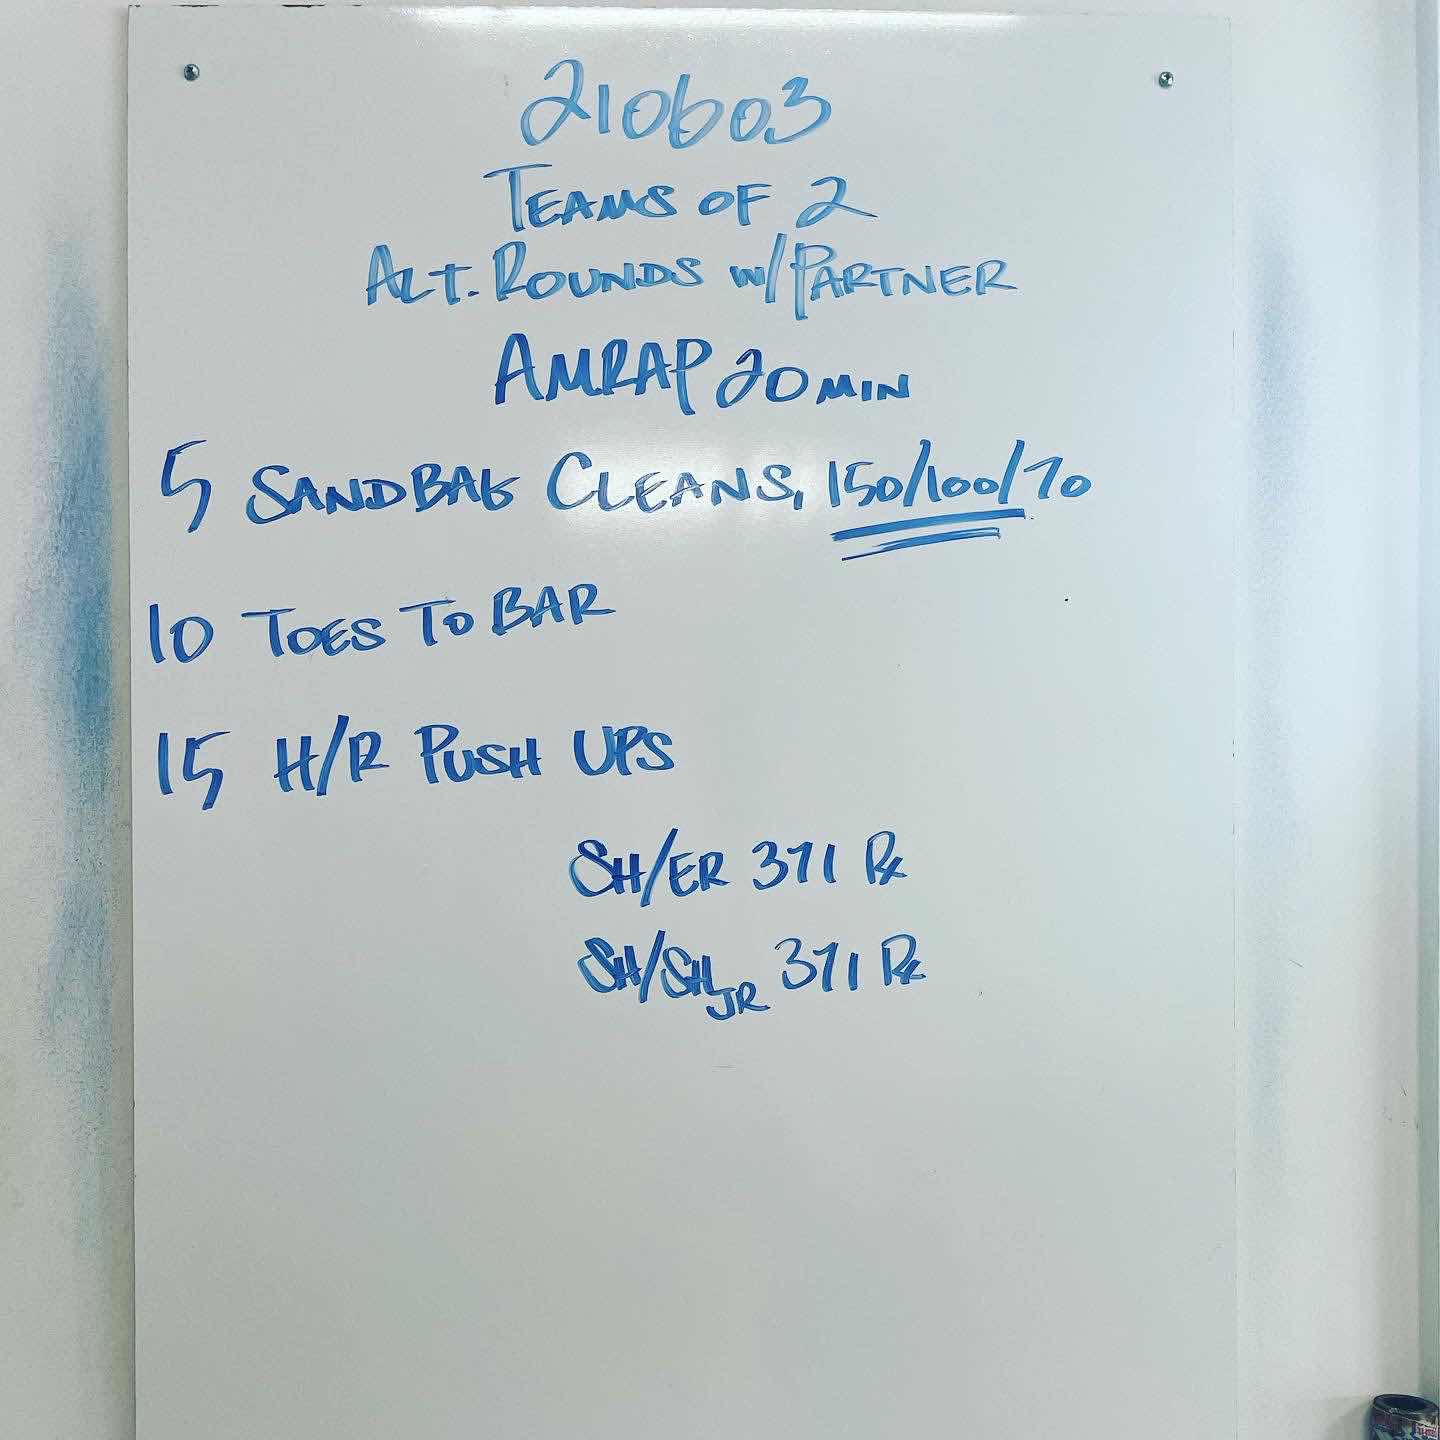 210603
TEAMS OF 2
ALT. ROUNDS W/PARTNER
AMRAP 20 MIN
5 SANDBAG CLEANS, 150/100/70
10 TOES TO BAR
15 H/R PUSH UPS
SH/ER 371 Rx
SH/SH JR 371 Rx